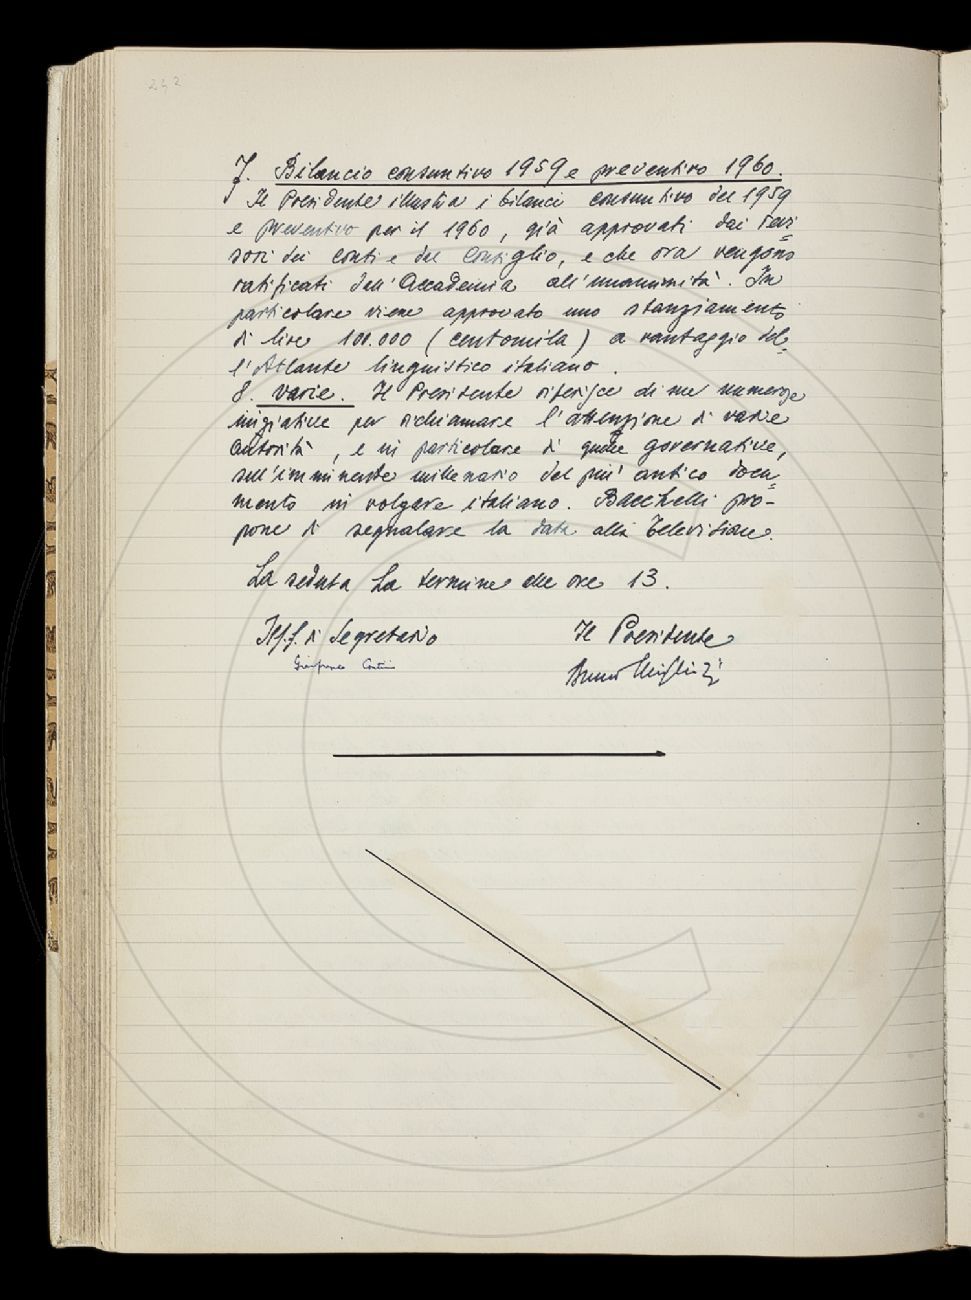 242
7. Bilancio consuntivo 1959 e preventivo 1960.
Il Presidente illustra i bilanci consuntivo del 1959
e preventivo per il 1960, già approvati dai revi=
sori dei conti e dal Consiglio, e che ora vengono
ratificati dall'Accademia all'unanimità. In
particolare viene approvato uno stanziamento
di lire 100.000 (centomila) a vantaggio del=
l'Atlante linguistico italiano.
8. Varie. Il Presidente riferisce di sue numerose
iniziative per richiamare l'attenzione di varie
autorità, e in particolare di quelle governative,
sull'imminente millenario del più antico docu=
mento in volgare italiano. Bacchelli pro-
pone di segnalare la data alla Televisione.
La seduta ha termine alle ore 13.
Il f.f. di Segretario Il Presidente
Gianfranco Contini Bruno Migliorini